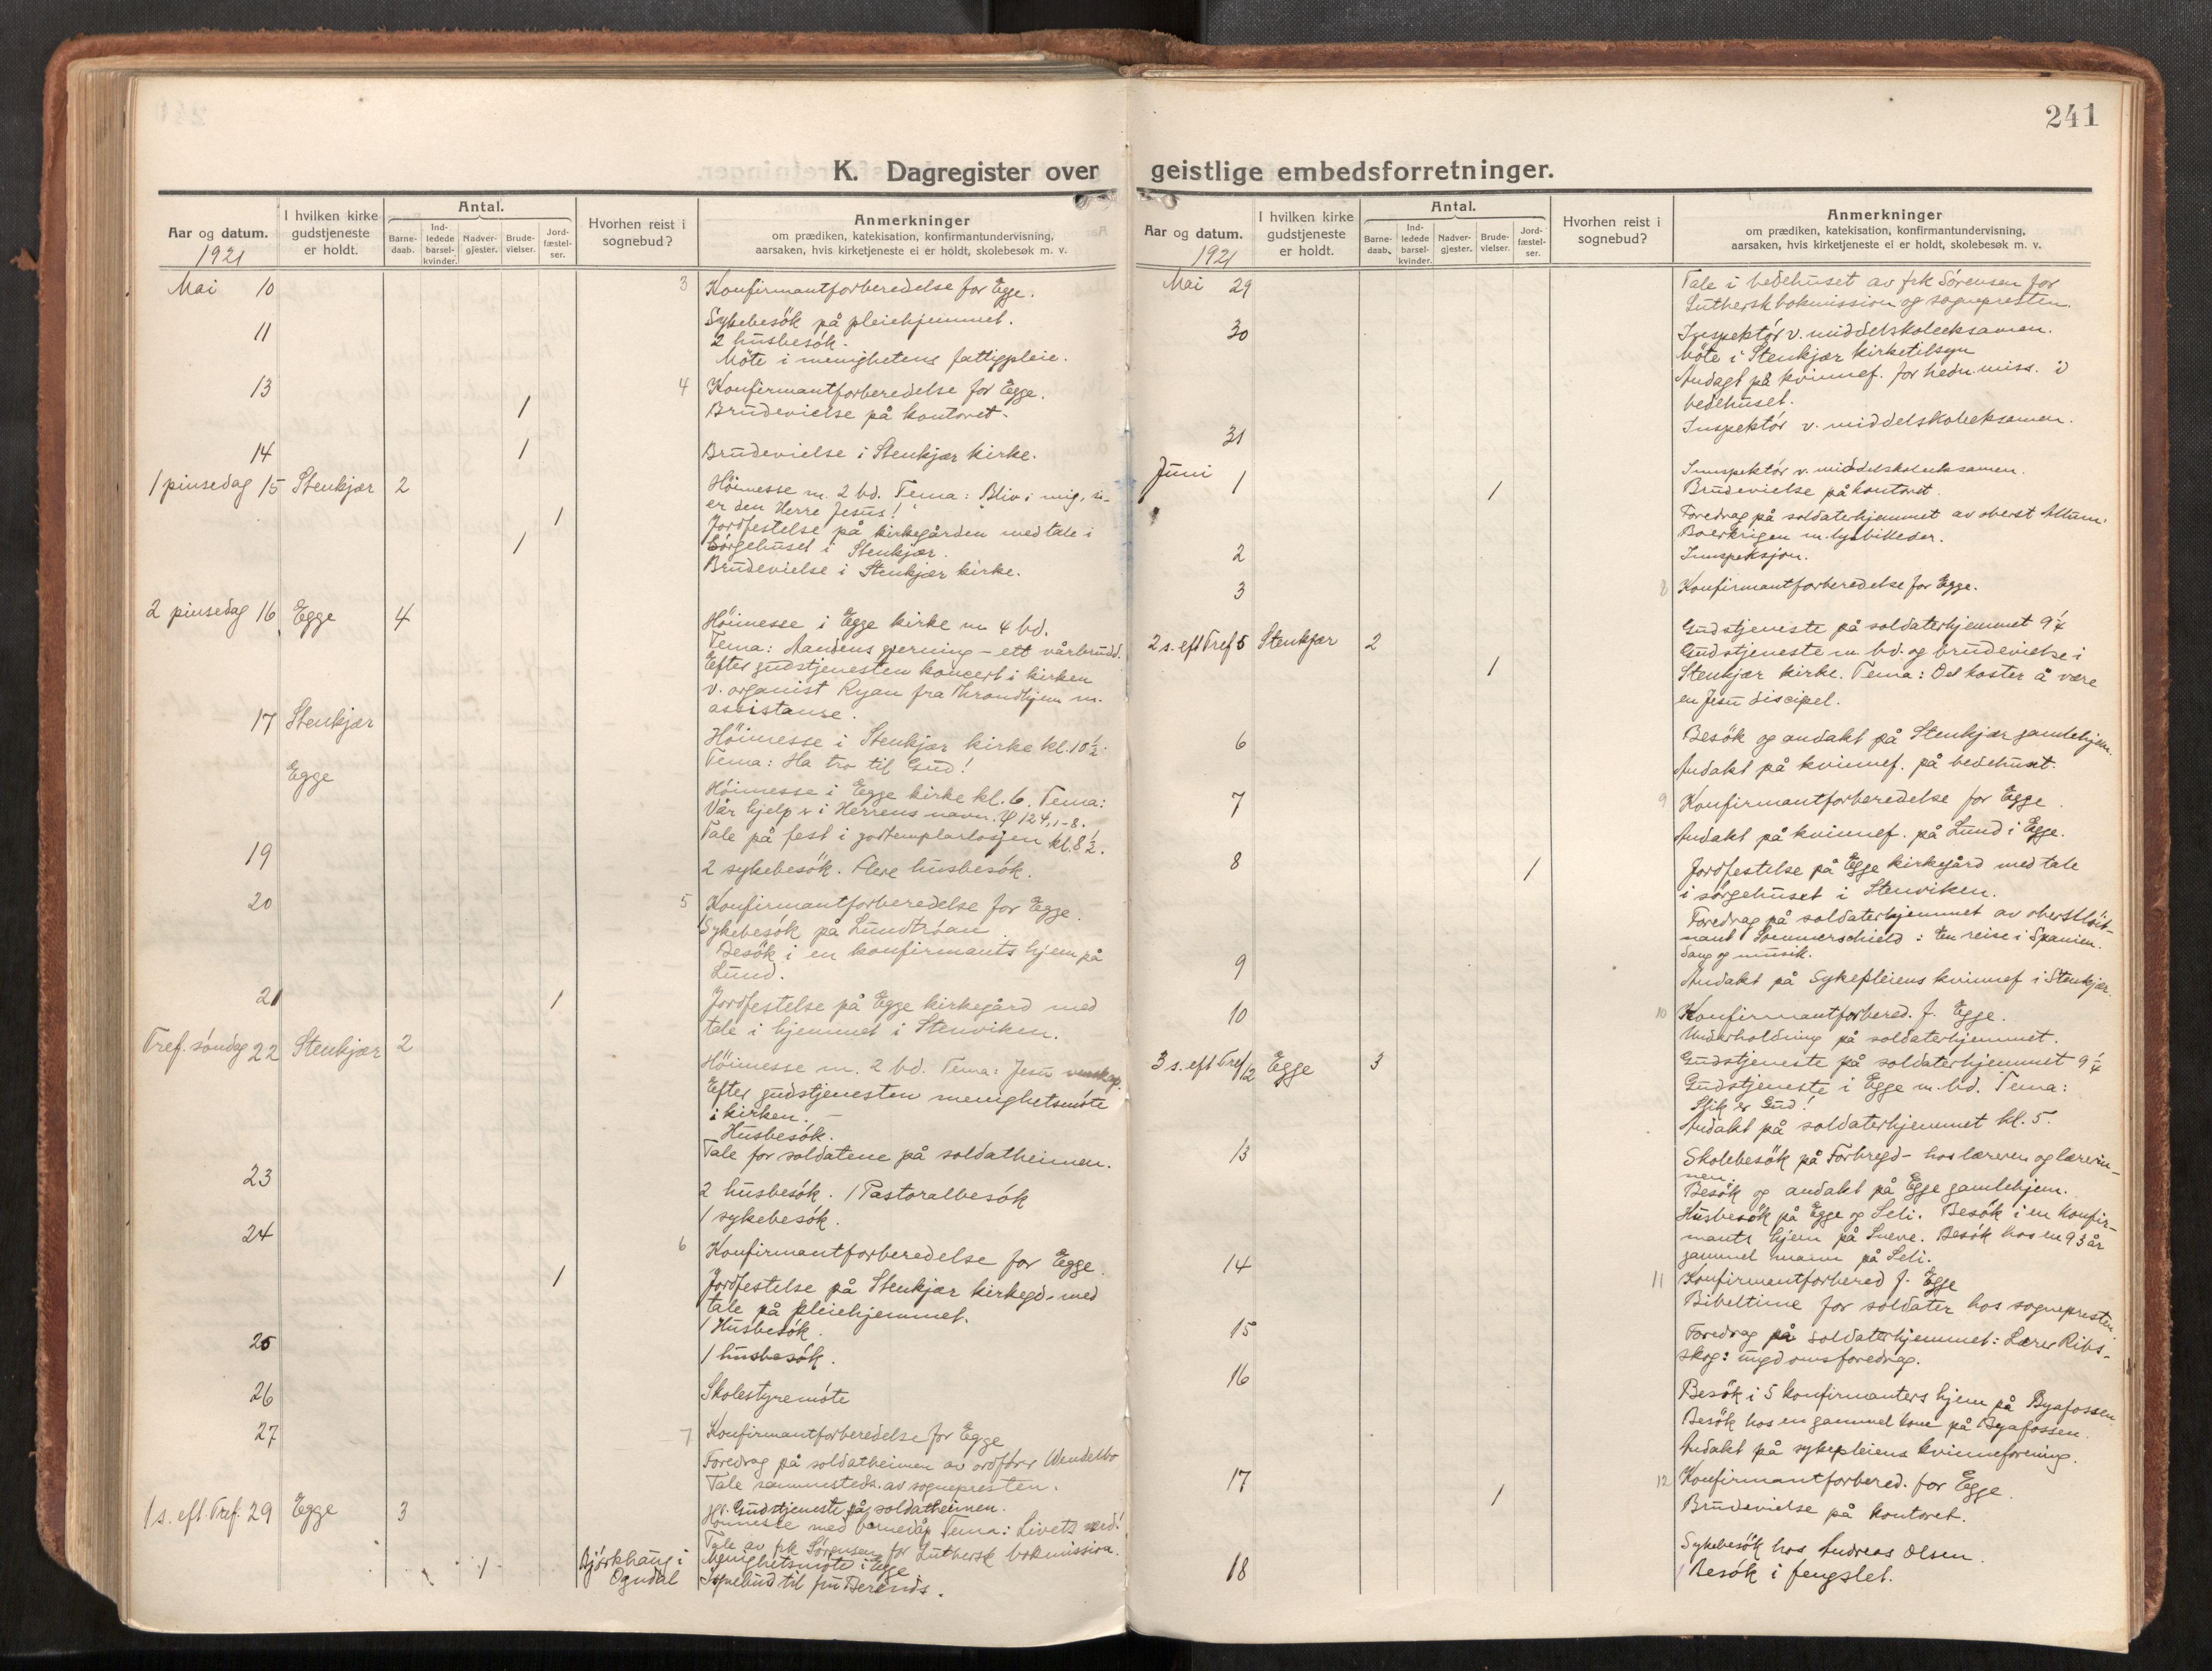 241
K. Dagregister over geistlige embedsforretninger.
Aar og datum.
1921
I hvilken kirke gudstjeneste er holdt.
Antal.
Barne-daab.
Ind-ledede barsel-kvinder.
Nadver-gjester.
Brude-vielser.
Jord-fæstel-ser.
Hvorhen reist i sognebud?
Anmerkninger
om prædiken, katekisation, konfirmantundervisning,
aarsaken, hvis kirketjeneste ei er holdt, skolebesøk m. v.
Mai 10 3 Konfirmantforberedelse for Egge.
Sykebesök på pleiehjemmet.
11 2 husbesök.
Möte i menighetens fattigpleie.
13 4 Konfirmantforberedelse for Egge.
1 Brudevielse på kontoret.
14 1 Brudevielse i Stenkjær kirke.
1 pinsedag 15 Stenkjær 2 Höimesse m. 2 bd. Tema: Bliv i mig, si-
er den Herre Jesus!
1 Jordfestelse på kirkegården med tale i
Sörgehuset i Stenkjær.
1 Brudevielse i Stenkjær kirke.
2 pinsedag 16 Egge 4 Höimesse i Egge kirke m 4 bd.
Tema: Aandens gjerning - ett vårbrudd.
Efter gudstjenesten koncert i kirken
v. organist Ryan fra Throndhjem m.
assistanse.
17 Stenkjær Höimesse i Stenkjær kirke kl. 10 1/2.
Tema: Ha tro til Gud!
Egge Höimesse i Egge kirke kl. 6. Tema:
Vår hjelp er i Herrens navn. ψ 124, 1-8.
Tale på fest i godtemplarlosjen kl. 8 1/2.
19 2 sykebesök. Flere husbesök.
20 5 Konfirmantforberedelse for Egge.
Sykebesök på Lundtröan
Besök i en konfirmants hjem på
Lund.
21 1 Jordfestelse på Egge kirkegård med
tale i hjemmet i Stenviken.
Tref. söndag 22 Stenkjær 2 Höimesse m. 2 bd. Tema: Jesu venskap.
Efter gudstjenesten menighetsmöte
i kirken.
Husbesök.
Tale for soldatene på soldatheimen.
23 2 husbesök. 1 Pastoralbesök
1 sykebesök.
24 6 Konfirmantforberedelse for Egge.
1 Jordfestelse på Stenkjær kirkegd. med
tale på pleiehjemmet.
1 Husbesök.
25 1 husbesök.
26 Skolestyremöte
27 7 Konfirmantforberedelse for Egge
Foredrag på soldatheimen av ordförer Wendelbo
Tale sammesteds av sognepresten.
Gudstjeneste på soldatheimen.
1 s. eft. Tref. 29 Egge 3 Höimesse med barnedåp Tema: Livets
Tale av frk Sörensen for Luthersk bokmission.
Menighetsmöte i Egge
1 Bjørkhaug i Ogndal Sognebud til fru Berends.
Aar og datum.
1921
I hvilken kirke gudstjeneste er holdt.
Antal.
Barne-daab.
Ind-ledede barsel-kvinder.
Nadver-gjester.
Brude-vielser.
Jord-fæstel-ser.
Hvorhen reist i sognebud?
Anmerkninger
om prædiken, katekisation, konfirmantundervisning,
aarsaken, hvis kirketjeneste ei er holdt, skolebesøk m. v.
Mai 29 Tale i bedehuset av frk Sörensen for
Luthersk bokmission og sognepresten.
30 Inspektör v. middelskoleeksamen.
Möte i Stenkjær kirketilsyn
Andagt på kvinnef. for hedn. miss. i
bedehuset.
31 Inspektör v. middelskoleeksamen.
Juni 1 Innspektör v. middelskoleeksamen.
1 Brudevielse på kontoret.
Foredrag på soldaterhjemmet av oberst Allum:
Boerkrigen m. lysbilleder.
2 Innspeksjon.
3 8 Konfirmantforberedelse for Egge.
Gudstjeneste på soldaterhjemmet 9 1/4
2 s. eft Tref 5 Stenkjær 2 Gudstjeneste m bd. og brudevielse i
1 Stenkjær kirke. Tema: Det koster å være
en Jesu discipel.
6 Besök og andakt på Stenkjær gamlehjem.
Andakt på kvinnef. på bedehuset.
7 9 Konfirmantforberedelse for Egge.
Andakt på kvinnef. på Lund i Egge.
8 1 Jordfestelse på Egge kirkegård med tale
i sörgehuset i Stenviken.
Foredrag på soldaterhjemmet av oberstlöit-
nant Sommerschield: En reise i Spanien.
Sang og musik.
9 Andakt på Sykepleiens kvinnef i Stenkjær.
10 10 Konfirmantforbered. f. Egge.
Underholdning på soldaterhjemmet.
Gudstjeneste på soldaterhjemmet 9 1/4
3 s. eft Tref 12 Egge 3 Gudstjeneste i Egge m. bd. Tema:
Slik er Gud!
Andakt på soldaterhjemmet kl. 5.
13 Skolebesök på Forbregd - hos læreren og lærerin-
nen.
Besök og andakt på Egge gamlehjem.
Husbesök på Egge og Seli. Besök i en konfir-
mants hjem på Sneve. Besök hos en 93 år
gammel mann på Seli.
14 11 Konfirmantforbered f. Egge
Bibeltime for soldater hos sognepresten.
15 Foredrag på soldaterhjemmet: Lærer Ribs-
skog: ungdomsforedrag.
16 Besök i 5 konfirmanters hjem på Byafossen
Besök hos en gammel kone på Byafossen.
Andakt på sykepleiens kvinneforening.
17 12 Konfirmantforbered. for Egge.
1 Brudevielse på kontoret.
Sykebesök hos Andreas Olsen.
18 1 Besök i fengslet.